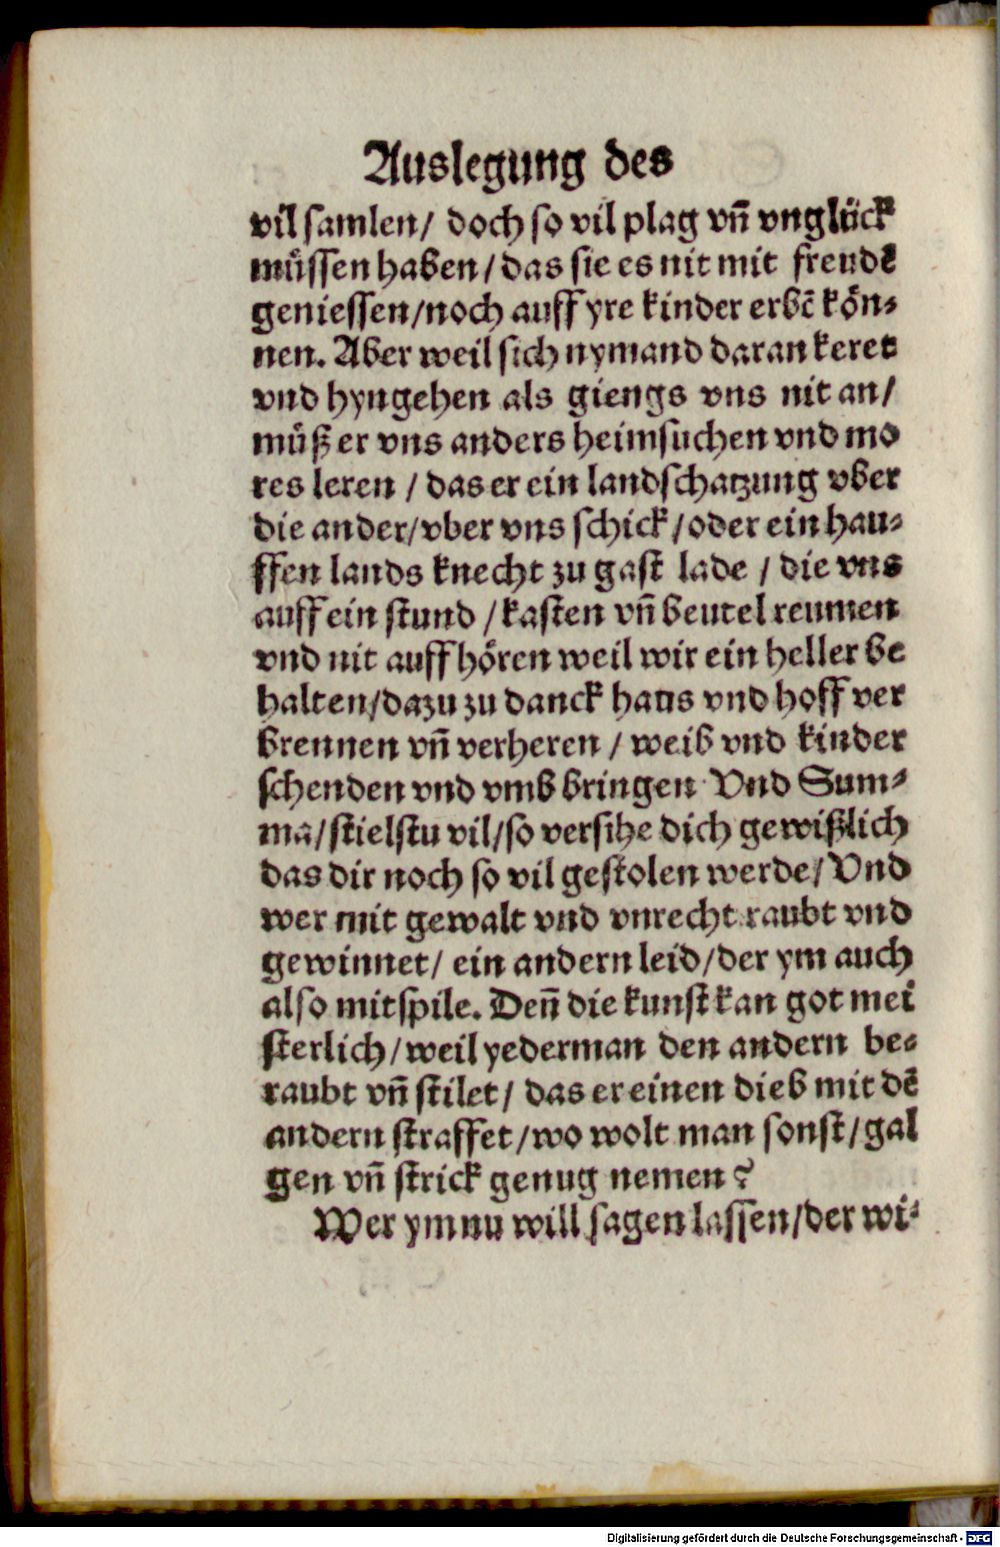 Auslegung des
vil samlen/ doch so vil plag vñ vnglück
müssen haben/das sie es nit mit freudẽ
geniessen/noch auff yre kinder erbẽ kön-
nen. Aber weil sich nymand daran keret
vnd hyngehen als giengs vns nit an/
müß er vns anders heimsuchen vnd mo
res leren / das er ein landschatzung vber
die ander/vber vns schick/oder ein hau-
ffen lands knecht zu gast lade / die vns
auff ein stund /kasten vñ beutel reumen
vnd nit auff hören weil wir ein heller be
halten/dazu zu danck haus vnd hoff ver
brennen vñ verheren / weib vnd kinder
schenden vnd vmb bringen Vnd Sum-
ma/stielstu vil/so versihe dich gewißlich
das dir noch so vil gestolen werde/Vnd
wer mit gewalt vnd vnrecht raubt vnd
gewinnet/ ein andern leid/der ym auch
also mitspile. Deñ die kunst kan got mei
sterlich/weil yederman den andern be-
raubt vñ stilet/ das er einen dieb mit dẽ
andern straffet/wo wolt man sonst/gal
gen vñ strick genug nemen?
Wer ym nu will sagen lassen/der wi-
Digitalisierung gefördert durch die Deutsche Forschungsgemeinschaft - DFG